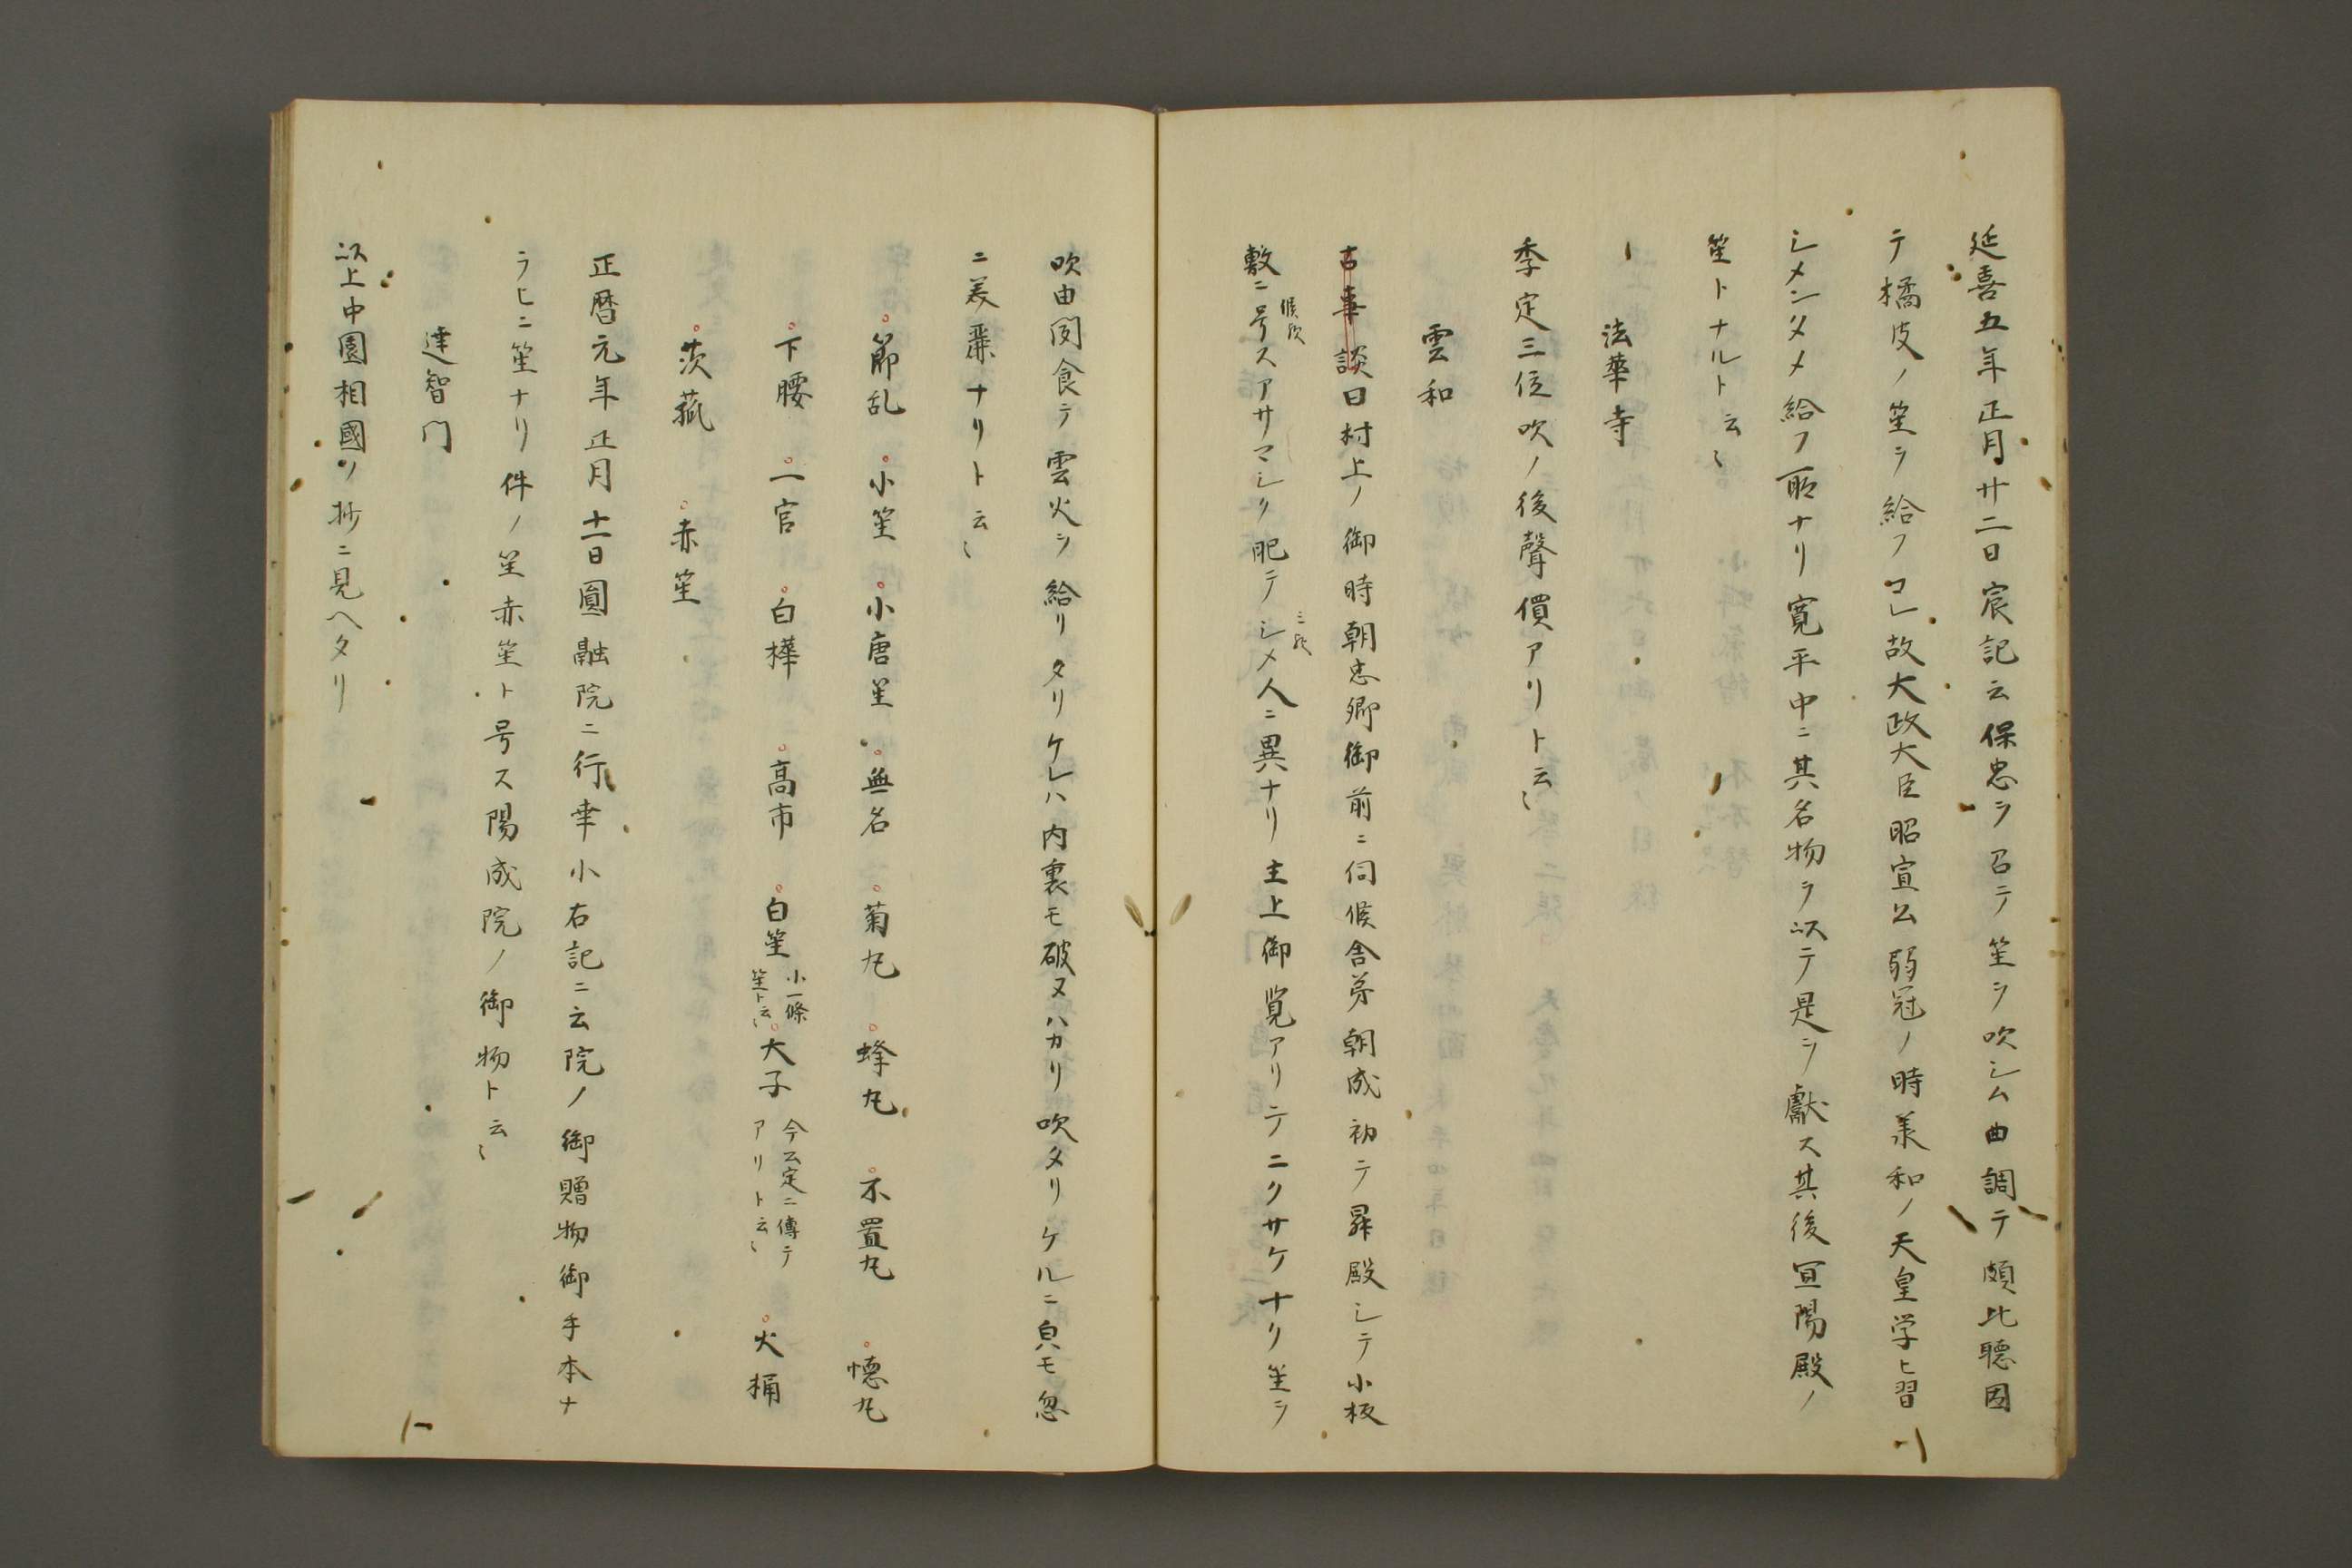 延喜五年正月廿二日宸記云保忠ヲ召テ笙ヲ吹シム曲調テ頗比聴因
テ橘皮ノ笙ヲ給フコレ故大政大臣昭宣公弱冠ノ時羕和ノ天皇学ヒ習
シメンタメ給フ所ナリ寛平中ニ其名物ヲ以テ是ヲ獻ス其後宣陽殿ノ
笙トナルト云〻
法華寺
季定三位吹ノ後聲價アリト云〻
雲和
古事談曰村上ノ御時朝忠卿御前ニ伺候舎弟朝成初テ昇殿シテ小板
敷ニ号スアサマシク肥テシメ人ニ異ナリ主上御覧アリテニクサケナリ笙ヲ
候歟
吹由聞食テ雲火ヲ給リタリケレハ内裏モ破ヌハカリ吹タリケルニ皃モ忽
ニ美麗ナリト云〻
節乱 小笙 小唐笙 無名 菊丸 蜂丸 不置丸 憓丸
下腰 二官 白樺 高市 白笙 小一條笙ト云〻 大子 今公定ニ傳テアリト云〻 火桶
茨菰 赤笙
正暦元年正月十一日圓融院ニ行幸小右記ニ云院ノ御贈物御手本ナ
ラヒニ笙ナリ件ノ笙赤笙ト号ス陽成院ノ御物ト云〻
達智門
以上中園相國ノ抄ニ見ヘタリ